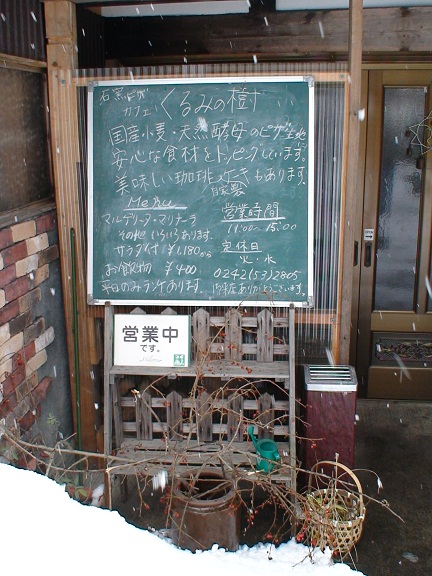 石窯ピザ
カフェ くるみの樹
国産小麦・天然酵母のピザ生地に
安心な食材をトッピングしています。
美味しい珈琲、ケーキもあります。
自家製
Menu
マルゲリータ・マリナーラ
その他いろいろあります。
サラダ付 ¥1,180から
お飲物 ¥400
営業時間
11:00〜15:00
定休日
火・水
0242(53)2805
平日のみランチあります。 ご来店ありがとうございます。
営業中
です。